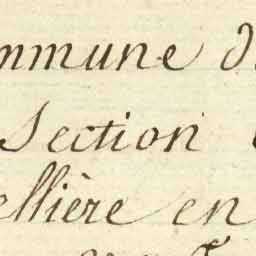 ommune d
Section
ellière en